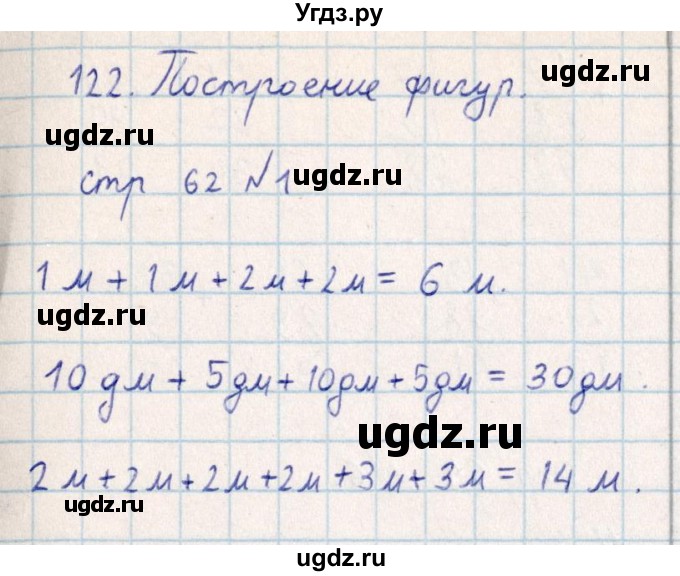 Угдз.ру
122. Построение фигур.
ugdz.ru
ugdz.ru
стр 62 №1
ugdz.ru
1 м + 1 м + 2 м + 2 м = 6 м.
ugdz.ru
10 дм + 5 дм + 10 дм + 5 дм = 30 дм.
ugdz.ru
2 м + 2 м + 2 м + 2 м + 3 м + 3 м = 14 м.
ugdz.ru
ugdz.ru